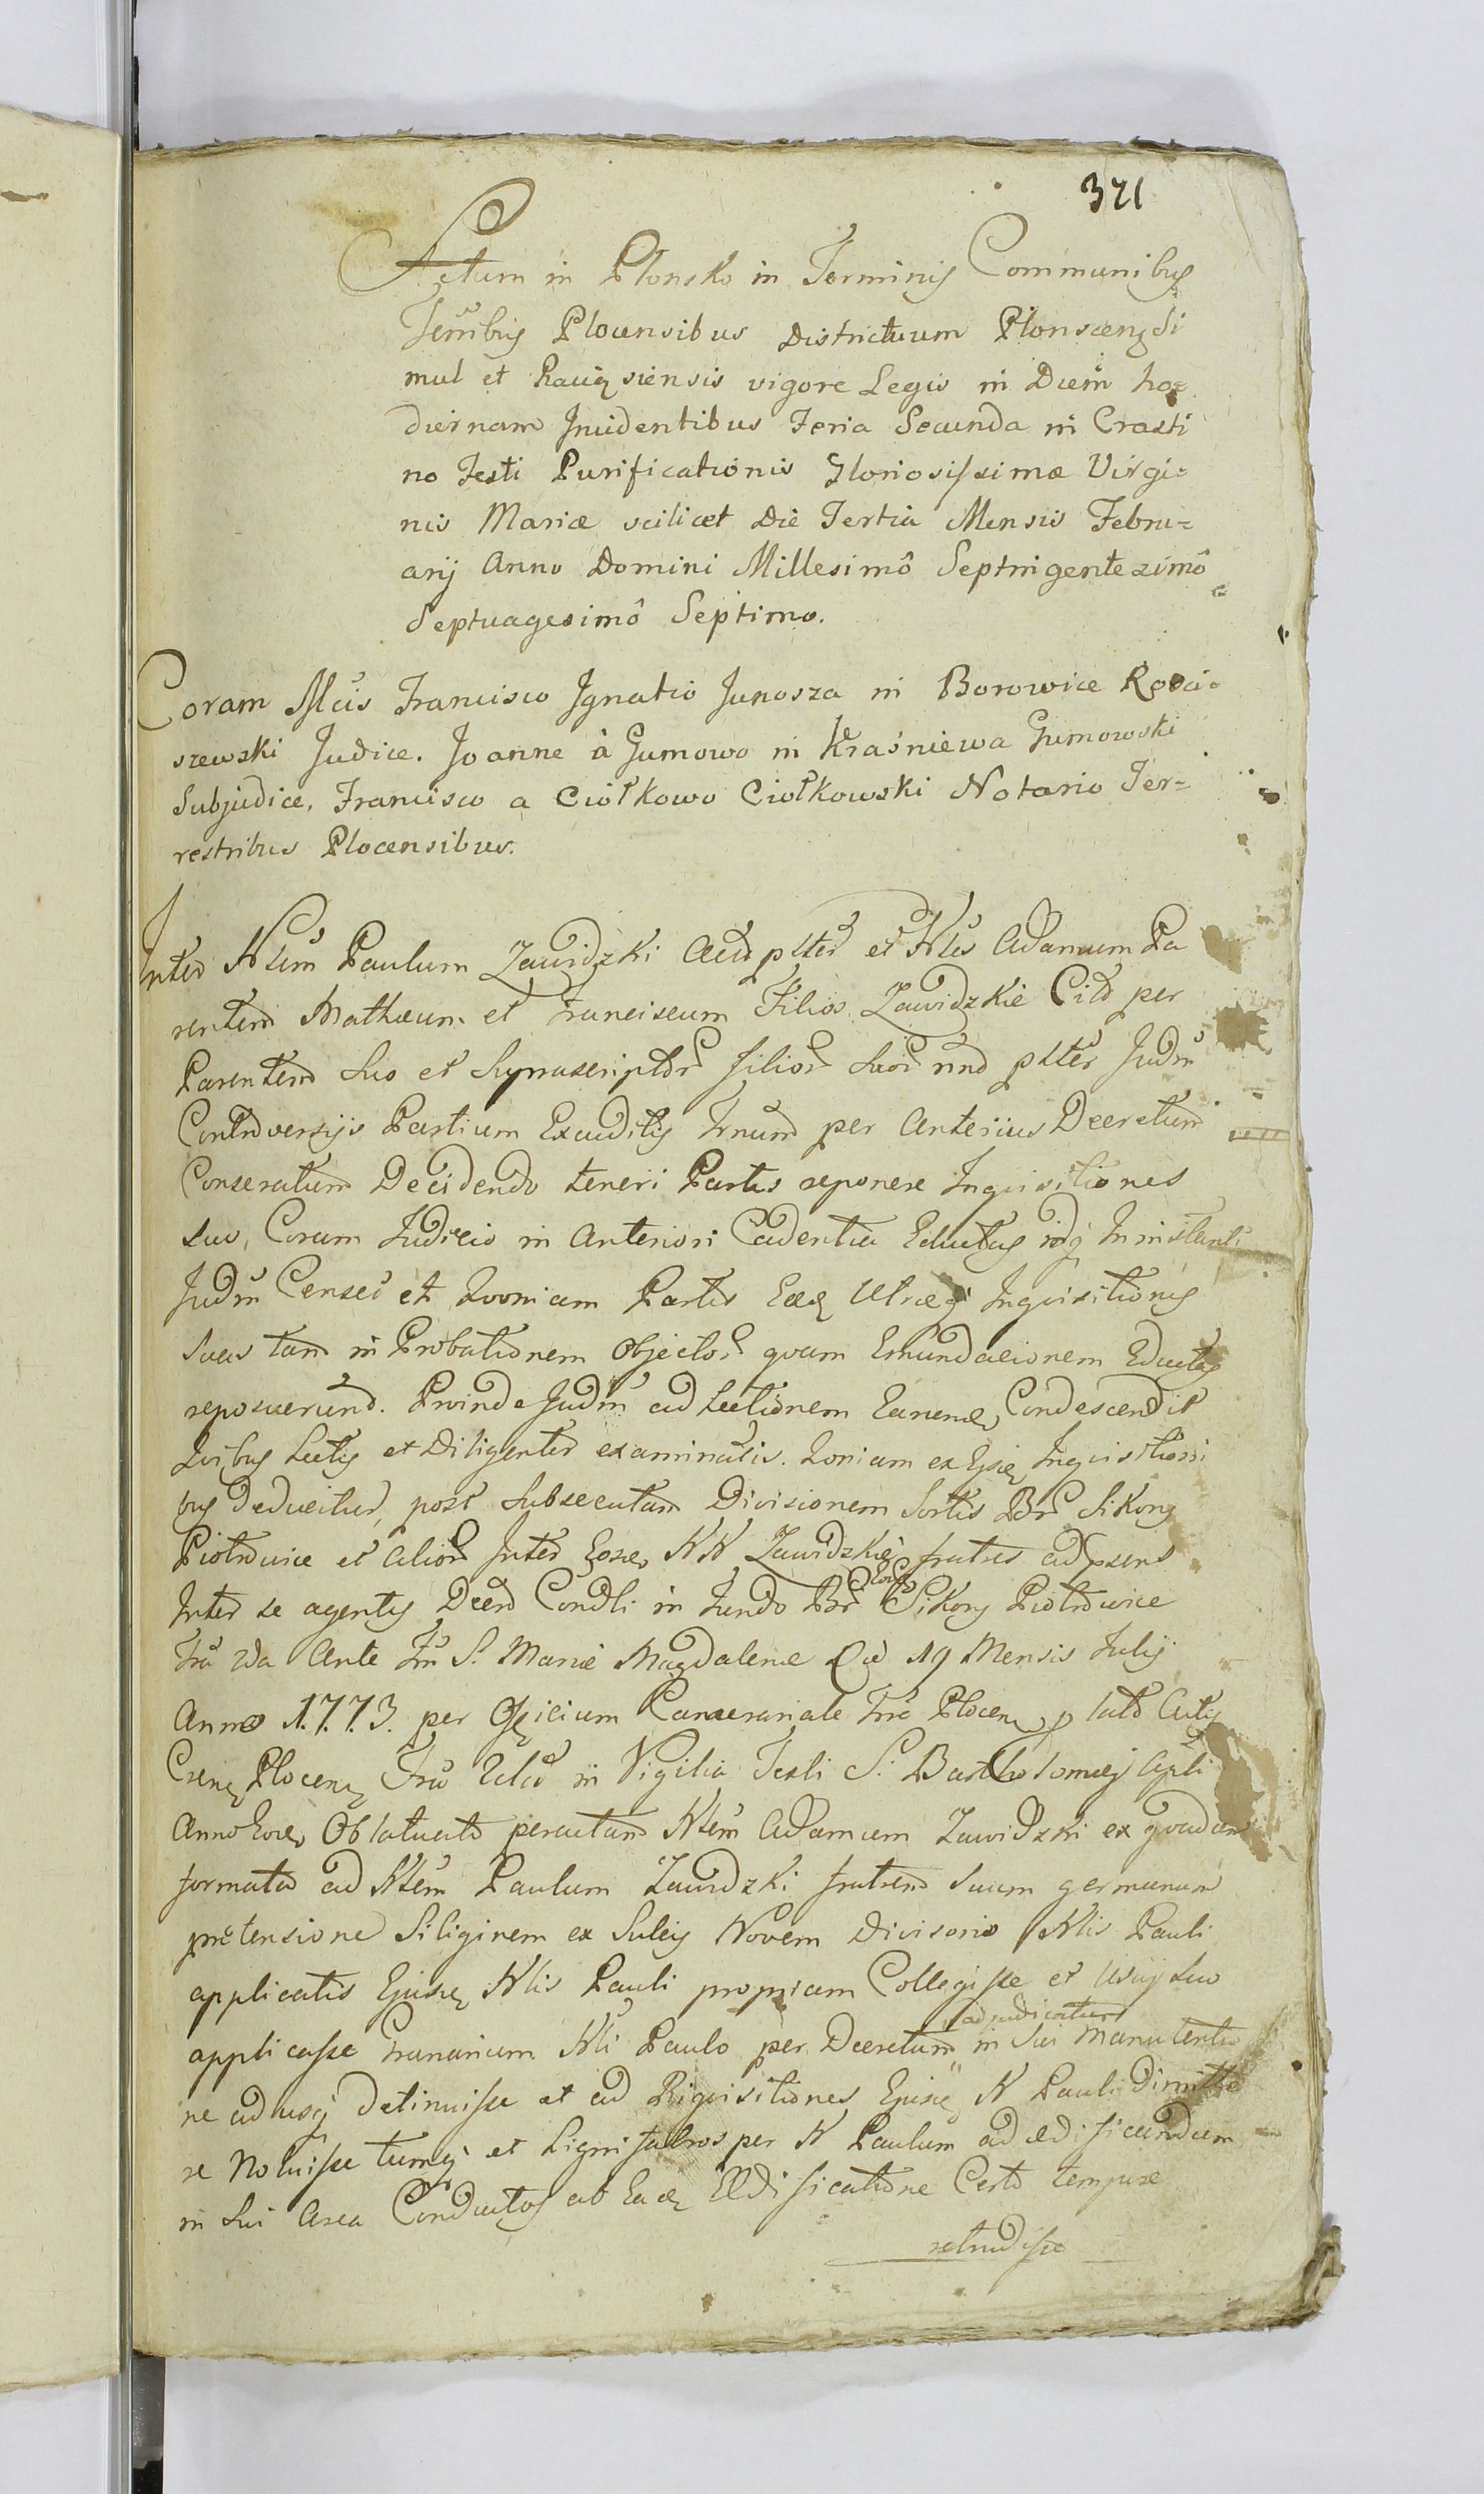 321
Actum in Płonsko in Terminis Communibus
Trribus Plocensibus Districtuum Plonscens Si
mul et Raciąsiensis vigore Legis in Diem ho=
diernam Incidentibus Feria Secunda in Crasti
no Festi Purificationis Gloriosissimæ Virgi=
nis Mariæ scilicet Die Tertia Mensis Febru=
arij Anno Domini Millesimô Septingentezimô
Septuagesimô Septimo.
Coram Mcis Francisco Ignatio Junosza in Borowice Rosci=
szewski Judice. Joanne à Gumowo in Kraśniewa Gumowski
Subjudice, Francisco a Ciołkowo Ciołkowski Notario Ter=
restribus Plocensibus.
Inter Nlem Paulum Zawidzki Act plter et Nles Adamum Pa
rentem Mathæum et Franciscum Filios Zawidzkie Citt per
Parentem Suo et Suprascriptor filior suor nno plter Judm
Controversijs Partium Exauditis Trnum per Anterius Decretum
Conservatum Decidendo teneri Partes reponere Inquisitiones
suas, Coram Judicio in Anteriori Cadentia Eductas idq In instanti
Judm Censet et Qvoniam Partes Eæd Utræq Inquisitiones
Suas tam in Probationem Objector quam Emundacionem Eductas
reposuerunt. Proinde Judm ad Lectionem Earumd Condescendit
Qvibus Lectis et Diligenter examinatis. Qoniam ex Ejsd Inqvisitioni
bus Deducitur, post Subsecutam Divisionem Sortis Br Sikory
Piotrowice et Alior Inter Eosd NN Zawidzkie fratres ad præns
Inter se agentes Decro Condli in Fundo Br Sikory Piotrowice
Fria 2da Ante Ftm S. Mariæ Magdalenæ Die 19 Mensis Julij
Anno 1.7.7.3. per Officium Camerariale Trre Plocen, p lato Actis
Csens Plocens Fria 2da in Vigilia Festi S. Bartholomæj Apli
Anno Eod Oblatuato peractam Nlem Adamum Zawidzki ex quadam
formata ad Nlem Paulum Zawidzki fratrem Suum germanum
prætensione Siliginem ex Sulcis Novem Divisorio Nlis Pauli
applicatis Ejusd Nlis Pauli propriam Collegisse et Usuj Suo
applicasse Granarium Nli Paulo per Decretum adjudicatum in Sui Manutentio
ne adusq detinuisse et ad Riqvisitiones Ejusd N Pauli Dimitte
re Noluisse tumq et Ligni fabros per N Paulum ad ædificandum
in Sui Area Conductos ab Ead Ædificatione Certo tempore
retrudisse